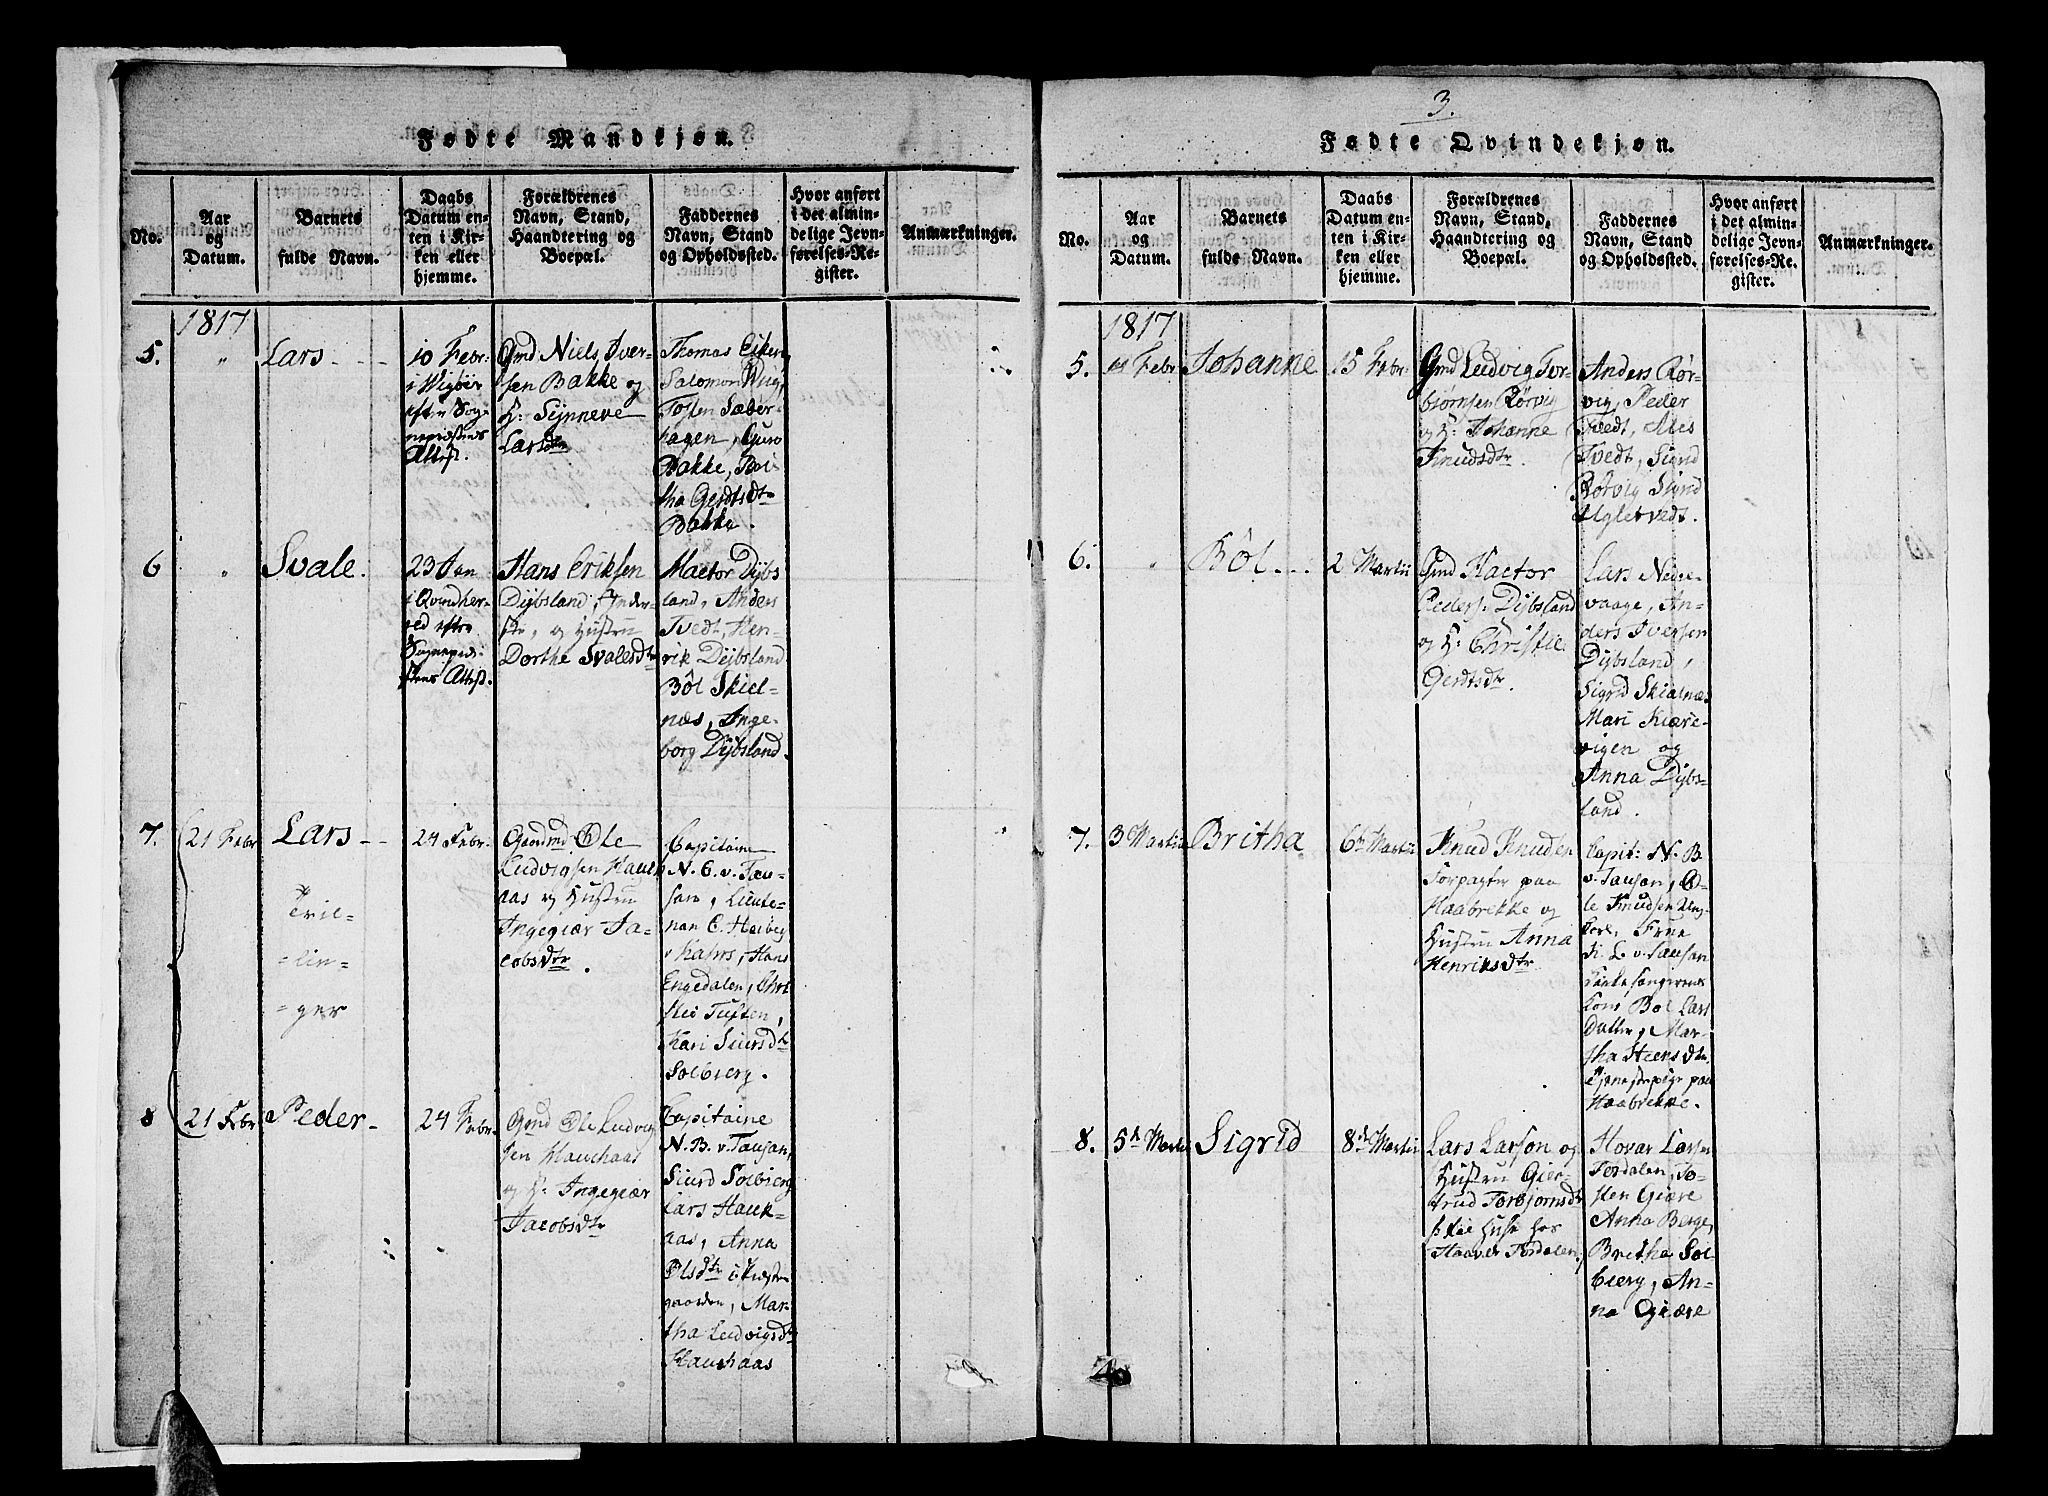 Fødte Mandkjøn.
No.
Aar
og
Datum.
Barnets
fulde Navn.
Daabs
Datum en-
ten i Kir-
ken eller
hjemme.
Forældrenes
Navn, Stand,
Haandtering og
Boepæl.
Faddernes
Navn, Stand
og Opholdssted.
Hvor anført
i det almin-
delige Jevn-
førelses-Re-
gister.
Anmærkninger.
1817
5.
"
Lars
10 Febr:
i
efter Sog
nepræstens
Attest.
Gmd Niels Iver-
sen Bakke og
H: Synneve
Larsdtr
Thomas Eiken
Salomon
Tosten Sæber-
hagen, Guro
Bakke, Bri
tha Gerdtsdtr
Bakke.
6
"
Svale.
23 Jan
i Qvindher-
red efter
Sognepræ-
stens Attest.
Hans Eriksen
Dybsland, Inder-
ste, og Hustru
Dorthe Svalesdtr
Hactor Dybs
land, Anders
Tvedt, Hen-
rik Dybsland
Böl Skiel-
næs, Inge-
borg Dybsland.
7.
21 Febr
Lars
Tvil-
-lin-
-ger
24 Febr.
Gaardmd Ole
Ludvigsen Hauk
aas og Hustru
Ingegiær Ja-
cobsdtr.
Capitaine
N. B. v. Tau-
san, Lieute-
nan C. Heiberg
Hans
Engedalen, Chri
Tuften,
Kari Siursdtr
Solbierg.
8
21 Febr
Peder
24 Febr.
Gmd Ole Ludvig
sen Haukaas
og H: Ingegiær
Jacobsdtr
Capitaine
N. B. v. Tausan,
Siurd Solbierg
Lars Hauk-
aas, Anna
Olsdtr i Præste
gaarden, Mar-
tha Ludvigsdtr
Haukaas
3.
Fødte Qvindekjøn.
No.
Aar
og
Datum.
Barnets
fulde Navn.
Daabs
Datum en-
ten i Kir-
ken eller
hjemme.
Forældrenes
Navn, Stand,
Haandtering og
Boepæl.
Faddernes
Navn, Stand
og Opholdssted.
Hvor anført
i det almin-
delige Jevn-
førelses-Re-
gister.
Anmærkninger.
1817
5.
Febr
Johanne
15 Febr
Gmd Ludvig Tor-
biörnsen Rörvig
og H: Johanne
Knudsdtr.
Anders Rör-
vig, Peder
Tvedt,
Tvedt, Sigrid
Rörvig
Ugletvedt.
6.
"
Böl
2 Martii
Gmd Hactor
Peders: Dybsland
og H: Christie
Gerdtsdtr.
Lars
vaage, An-
ders Iversen
Dybsland,
Sigrid Skialnæs
Mari Kiære-
vigen og
Anna Dybs-
land.
7.
3 Martii
Britha
6te Martii
Knud Knudsen
Forpagter paa
Haabrekke og
Hustru Anna
Henriksdtr
Capit: N. B
v. Tausan, O-
le Knudsen Ung-
karl, Frue
L. v. Tausan
sangerens
Kone Böl Lars
datter, Mar-
tha Steensdtr
Tjenestepige paa
Haabrekke.
8.
5te Martii
Sigrid
8de Martii
Lars Larson og
Hustru Gier-
trud Torbjornsdtr
Huse hos
Haaver Tordalen,
Hovar Larsen
Tordalen, To-
sten Giære
Anna Berge,
Britha Sol-
bierg, An-
na Giære